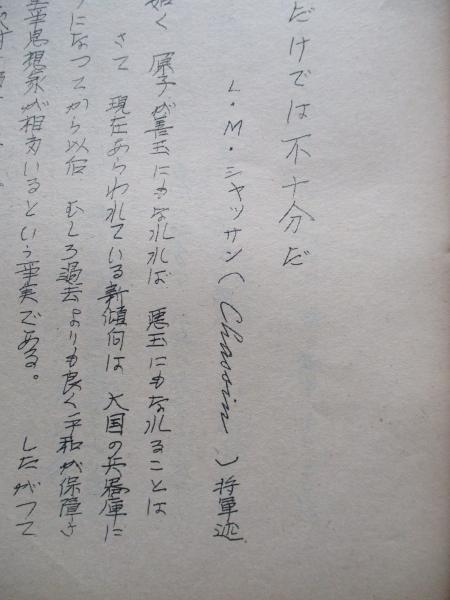 だけでは不十分だ
L・M・シャッサン(Chassin)将軍述
如く 原子が善玉にもなれれば 悪玉にもなれることは
さて 現在あらわれている新傾向は 大国の兵器庫に
になつてから以后 むしろ過去よりも良く平和が保障さ
思想家が相当いるという事実である。 したがつて